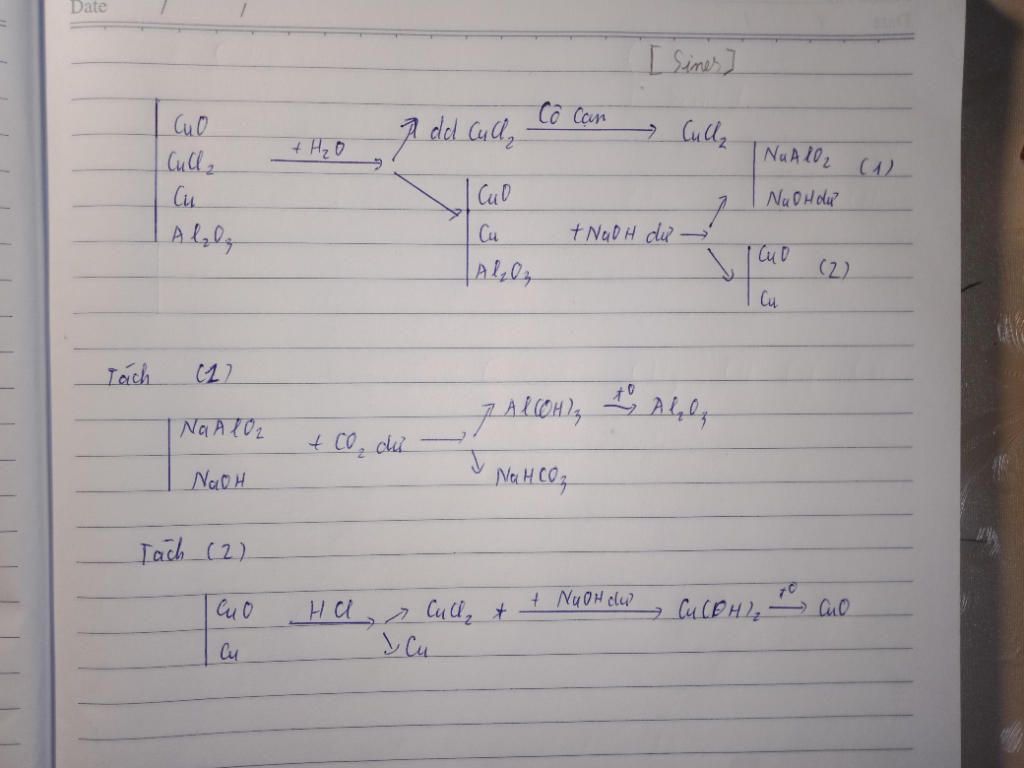 Date / /
[Sines]
CuO
CuCl₂
Cu
Al₂O₃
+ H₂O
dd CuCl₂ Cô cạn CuCl₂
CuO
Cu + NaOH dư
Al₂O₃
NaAlO₂ (1)
NaOH dư
CuO (2)
Cu
Tách (1)
NaAlO₂ + CO₂ dư
NaOH
Al(OH)₃ t⁰ Al₂O₃
NaHCO₃
Tách (2)
CuO HCl CuCl₂ + NaOH dư Cu(OH)₂ t⁰ CuO
Cu Cu